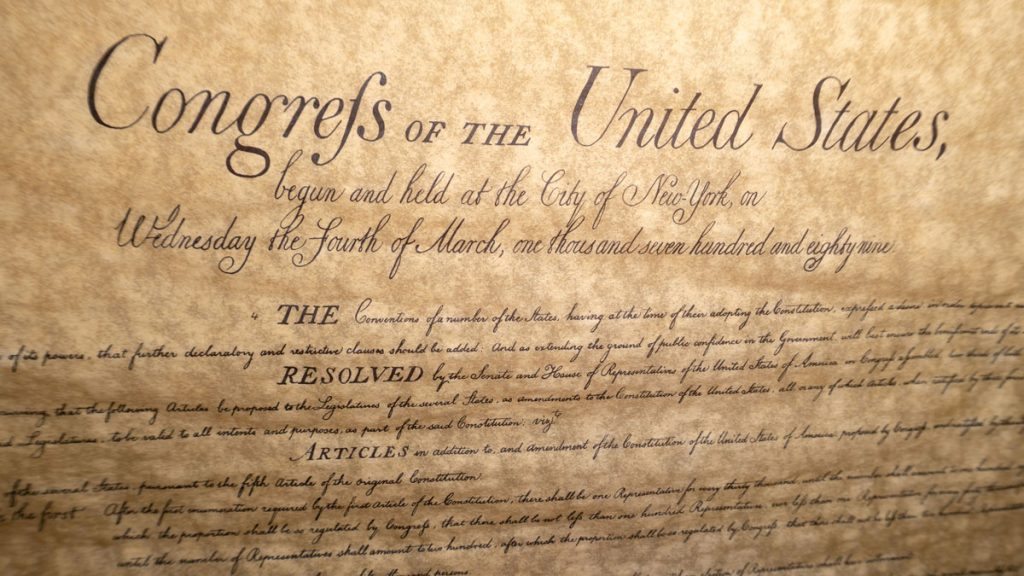 Congreſs OF THE United States,
begun and held at the City of New-York, on
Wednesday the Fourth of March, one thousand seven hundred and eighty nine
THE Conventions of a number of the States, having at the time of their adopting the Constitution, expreſsed a desire
of its powers, that further declaratory and restrictive clauses should be added: And as extending the ground of public confidence in the Government, will best ensure the beneficent ends of its
RESOLVED by the Senate and House of Representatives of the United States of America in Congreſs aſsembled, two thirds of both
that the following Articles be proposed to the Legislatures of the several States, as amendments to the Constitution of the United States, all or any of which Articles, when ratified by three fourths
Legislatures, to be valid to all intents and purposes, as part of the said Constitution; vizt
ARTICLES in addition to, and amendment of the Constitution of the United States of America, proposed by Congreſs and ratified by the
of the several States, pursuant to the fifth Article of the original Constitution.
the first After the first enumeration required by the first Article of the Constitution, there shall be one Representative for every thirty thousand, until the number shall amount to one hundred
which, the proportion shall be so regulated by Congreſs, that there shall be not leſs than one hundred Representatives, nor leſs than one Representative for every forty thousand
until the number of Representatives shall amount to two hundred, after which the proportion shall be so regulated by Congreſs, that there shall not be leſs than two hundred
persons.
election of Representatives shall have intervened.